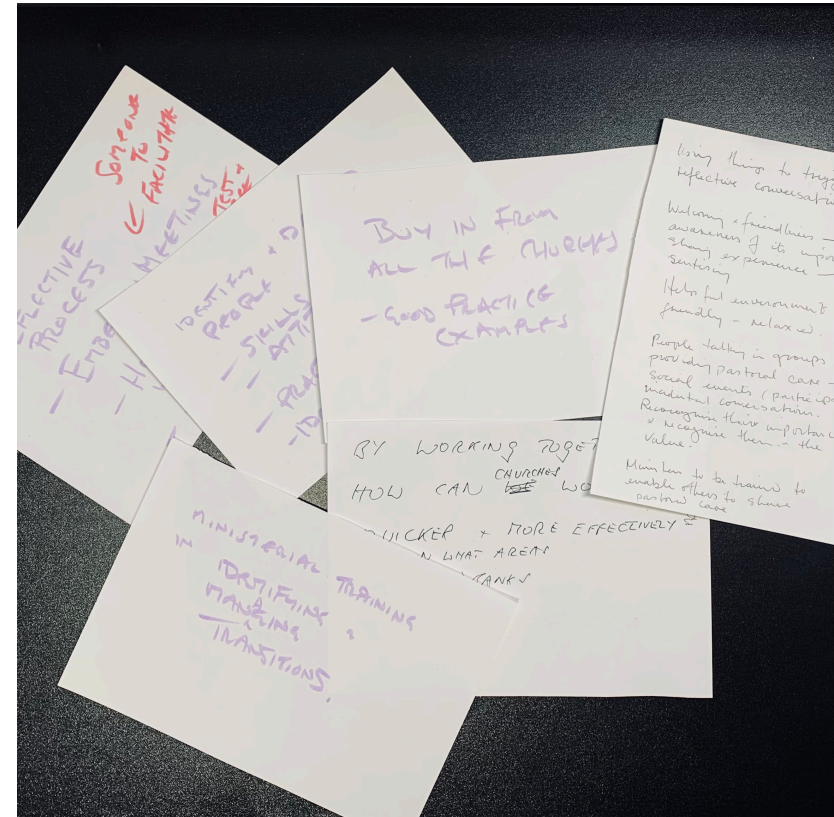 SOMEONE
TO
FACILITATE
TEST +
PROCESS
- EMBE MEETINGS
- H
IDENTIFY + D
PEOPLE
- SKILLS
- ATTI
- PRAC
- ID
BUY IN FROM
ALL THE CHURCHES
- GOOD PRACTICE
EXAMPLES
Using things to
reflective conversation
Welcoming + friendliness -
awareness of its impor
sharing experience -
Helpful environment
friendly - relaxed.
People talking in groups
providing pastoral care -
social events (particip
incidental conversations.
Recognise their importanc
+ recognise them - the
value.
Minister to be trained to
enable others to share
pastoral care
BY WORKING TOGET
HOW CAN CHURCHES WO
QUICKER + MORE EFFECTIVELY?
N WHAT AREAS
TANKS
MINISTERIAL TRAINING
IN IDENTIFYING
&
MANAGING
TRANSITIONS.